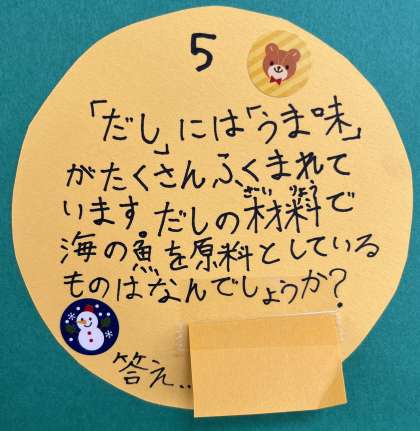 5
「だし」には「うま味」
がたくさんふくまれて
います だしの材料で
ざい りょう
海の魚を原料としている
ものはなんでしょうか?
答え..